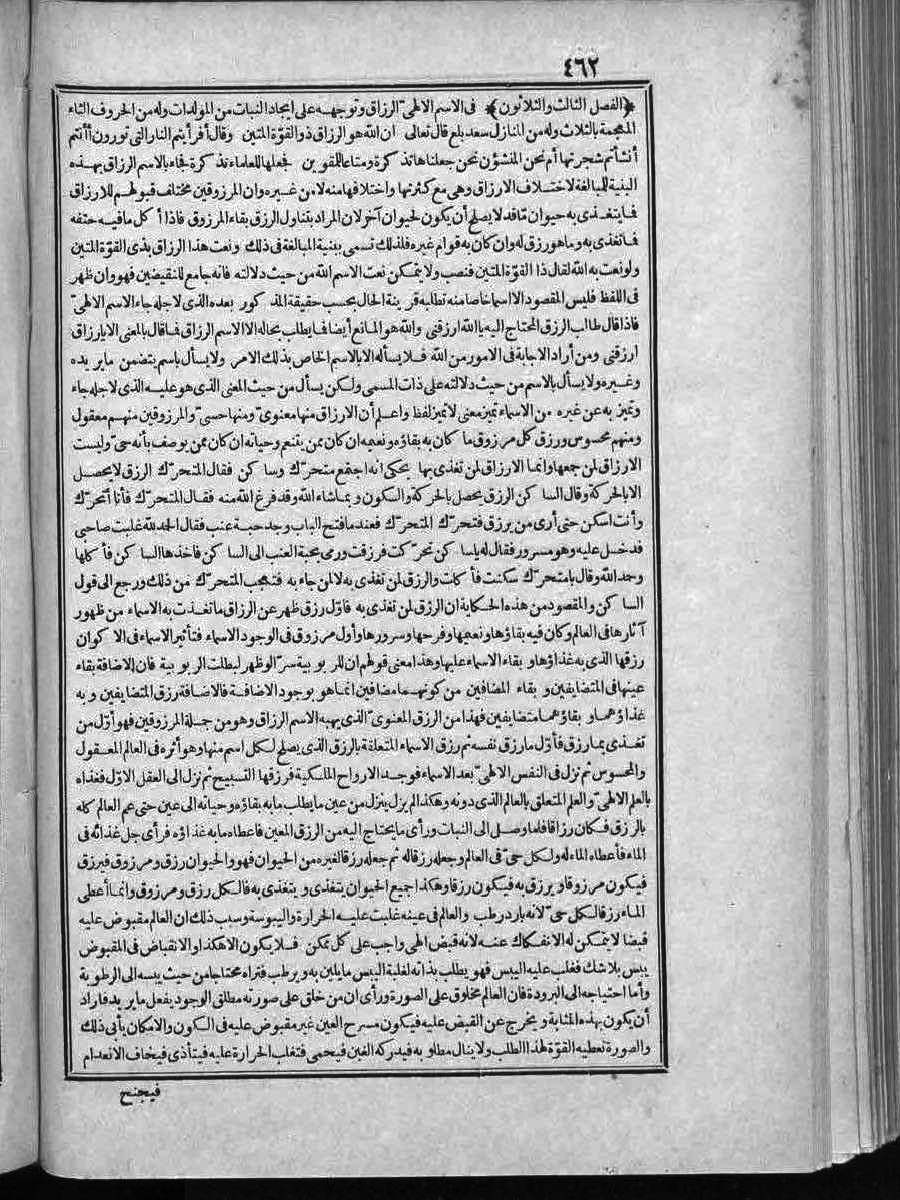 ٤٦٢
﴿الفصل الثالث والثلاثون﴾ فى الاسم الالهىّ الرزاق وتوجهه على ايجاد النبات من المولدات وله من الحروف الثاء
المعجمة بالثلاث وله من المنازل سعد بلع قال تعالى ان الله هو الرزاق ذو القوّة المتين وقال أفرأيتم النار التى تورون أأنتم
أنشأتم شجرتها أم نحن المنشؤن نحن جعلناها تذكرة ومتاعا للمقوين فجعلها للعلماء تذكرة فجاء بالاسم الرزاق بهذه
البنية للمبالغة لاختلاف الارزاق وهى مع كثرتها واختلافها منه لا من غيره وان المرزوقين مختلف قبولهم للارزاق
فما يتغذى به حيوان مّا قد لا يصلح أن يكون لحيوان آخر لان المراد بتناول الرزق بقاء المرزوق فاذا أكل ما فيه حتفه
فما تغذى به وما هو رزق له وان كان به قوام غيره فلذلك تسمى ببنية المبالغة فى ذلك ونعت هذا الرزاق بذى القوّة المتين
ولو نعت به الله لقال ذا القوّة المتين فنصب ولا يتمكن نعت الاسم الله من حيث دلالته فانه جامع للنقيضين فهو وان ظهر
فى اللفظ فليس المقصود الا اسما خاصا منه تطلبه قرينة الحال بحسب حقيقة المذكور بعده الذى لاجله جاء الاسم الالهىّ
فاذا قال طالب الرزق المحتاج اليه يا الله ارزقنى والله هو المانع أيضا فما يطلب بحاله الا الاسم الرزاق فما قال بالمعنى الا يا رزاق
ارزقنى ومن أراد الاجابة فى الامور من الله فلا يسأله الا بالاسم الخاص بذلك الامر ولا يسأل باسم يتضمن ما يريده
وغيره ولا يسأل بالاسم من حيث دلالته على ذات المسمى ولكن يسأل من حيث المعنى الذى هو عليه الذى لاجله جاء
وتميز به عن غيره من الاسماء تميز معنى لا تميز لفظ واعلم أن الارزاق منها معنوىّ ومنها حسىّ والمرزوقين منهم معقول
ومنهم محسوس ورزق كل مرزوق ما كان به بقاؤه ونعيمه ان كان ممن يتنعم وحياته ان كان ممن يوصف بأنه حىّ وليست
الارزاق لمن جمعها وانما الارزاق لمن تغذى بها يحكى انه اجتمع متحرّك وساكن فقال المتحرّك الرزق لا يحصل
الا بالحركة وقال الساكن الرزق يحصل بالحركة والسكون وبما شاء الله وقد فرغ الله منه فقال المتحرّك فأنا أتحرّك
وأنت اسكن حتى أرى من يرزق فتحرّك المتحرّك فعند ما فتح الباب وجد حبة عنب فقال الحمد لله غلبت صاحبى
فدخل عليه وهو مسرور فقال له يا ساكن تحرّكت فرزقت ورمى بحبة العنب الى الساكن فاخذها الساكن فأكلها
وحمد الله وقال يا متحرّك سكنت فأكلت والرزق لمن تغذى به لا لمن جاء به فتعجب المتحرّك من ذلك ورجع الى قول
الساكن والمقصود من هذه الحكاية ان الرزق لمن تغذى به فاوّل رزق ظهر عن الرزاق ما تغذت به الاسماء من ظهور
آثارها فى العالم وكان فيه بقاؤها ونعيمها وفرحها وسرورها وأول مرزوق فى الوجود الاسماء فتأثير الاسماء فى الاكوان
رزقها الذى به غذاؤها وبقاء الاسماء عليها وهذا معنى قولهم ان للربوبية سرّا لو ظهر لبطلت الربوبية فان الاضافة بقاء
عينها فى المتضايفين وبقاء المضافين من كونهما مضافين انما هو بوجود الاضافة فالاضافة رزق المتضايفين وبه
غذاؤهما وبقاؤهما متضايفين فهذا من الرزق المعنوىّ الذى يهبه الاسم الرزاق وهو من جملة المرزوقين فهو أوّل من
تغذى بما رزق فأوّل ما رزق نفسه ثم رزق الاسماء المتعلقة بالرزق الذى يصلح لكل اسم منها وهو أثره فى العالم المعقول
والمحسوس ثم نزل فى النفس الالهىّ بعد الاسماء فوجد الارواح الملكية فرزقها التسبيح ثم نزل الى العقل الاوّل فغذاه
بالعلم الالهىّ والعلم المتعلق بالعالم الذى دونه وهكذا لم يزل ينزل من عين ما يطلب ما به بقاؤه وحياته الى عين حتى عم العالم كله
بالرزق فكان رزاقا فلما وصل الى النبات ورأى ما يحتاج اليه من الرزق المعين فاعطاه ما به غذاؤه فرأى جل غذائه فى
الماء فأعطاه الماء له ولكل حىّ فى العالم وجعله رزقا له ثم جعله رزقا لغيره من الحيوان فهو والحيوان رزق ومرزوق فيرزق
فيكون مرزوقا ويرزق به فيكون رزقا وهكذا جميع الحيوان يتغذى ويتغذى به فالكل رزق ومرزوق وانما أعطى
الماء رزقا لكل حىّ لانه بارد رطب والعالم فى عينه غلبت عليه الحرارة واليبوسة وسبب ذلك ان العالم مقبوض عليه
قبضا لا يتمكن له الانفكاك عنه لانه قبض الهى واجب على كل ممكن فلا يكون الا هكذا والانقباض فى المقبوض
يبس بلا شك فغلب عليه اليبس فهو يطلب بذاته لغلبة اليبس ما يلين به ويرطب فتراه محتاجا من حيث يبسه الى الرطوبة
وأما احتياجه الى البرودة فان العالم مخلوق على الصورة ورأى ان من خلق على صورته مطلق الوجود يفعل ما يريد فاراد
أن يكون بهذه المثابة ويخرج عن القبض عليه فيكون مسرح العين غير مقبوض عليه فى الكون والامكان يأبى ذلك
والصورة تعطيه القوّة لهذا الطلب ولا ينال مطلوبه فيدركه الغبن فيحمى فتغلب الحرارة عليه فيتأذى فيخاف الانعدام
فيجنح